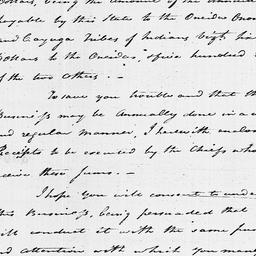 Dollars, being the amount of the annual
payable by this State to the Oneida Onon
and Cayuga Tribes of Indians vizt.
Dollars to the Oneidas, five hundred
of the two others. –
To save you trouble and that the
Business may be Annually done in a
and regular manner, I herewith enclose
Receipts to be executed by the Chiefs who
receive these Sums. –
I hope you will consent to under
this Business, being persuaded that
will conduct it with the same
and attention with which you man